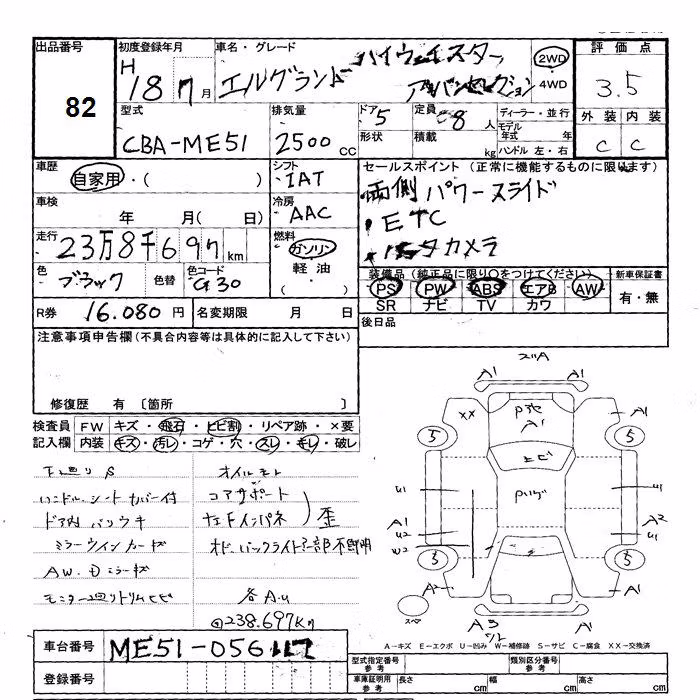 出品番号 82
初度登録年月 H 18 7月
車名・グレード エルグランド ハイウェイスター
アーバンセレクション
2WD
4WD
評価点 3.5
型式 CBA-ME51
排気量 2500 CC
ドア 5
形状
定員 8 人
積載 kg
ディーラー・並行
モデル年式 年
ハンドル 左・右
外装 内装
C C
車歴 自家用・( )
シフト IAT
セールスポイント (正常に機能するものに限ります)
両側パワースライド
ETC
カメラ
車検 年 月( 日)
冷房 AAC
走行 23万8千697km
燃料 ガソリン
軽油
( )
色 ブラック 色替
色コード G30
装備品 (純正品に限り○をつけてください) 新車保証書
PS PW ABS エアB AW 有・無
SR ナビ TV カワ
R券 16.080 円 名変期限 月 日
後日品
注意事項申告欄 (不具合内容等は具体的に記入して下さい)
修復歴 有 〔箇所 〕
検査員 FW キズ・飛石・ヒビ割・リペア跡・×要
記入欄 内装 キズ・汚レ・コゲ・穴・スレ・キレ・破レ
オイルモレ
ハンドル、シートカバー付
コアサポート
左Fインパネ 歪
ミラーウインカーキズ
AW、Dミラーキズ
各A.U
238.697km
A1 A1
XX A1 A1
5 5
ヒビ
U1 U1
A1 A2
U2 U1
W2
3 3
A2 A1
スペア
A3 A1
A-キズ E-エクボ U-凹み W-補修跡 S-サビ C-腐食 XX-交換済
車台番号 ME51-056117
登録番号
型式指定番号 参考
類別区分番号 参考
車庫証明用 参考 長さ cm 幅 cm 高さ cm